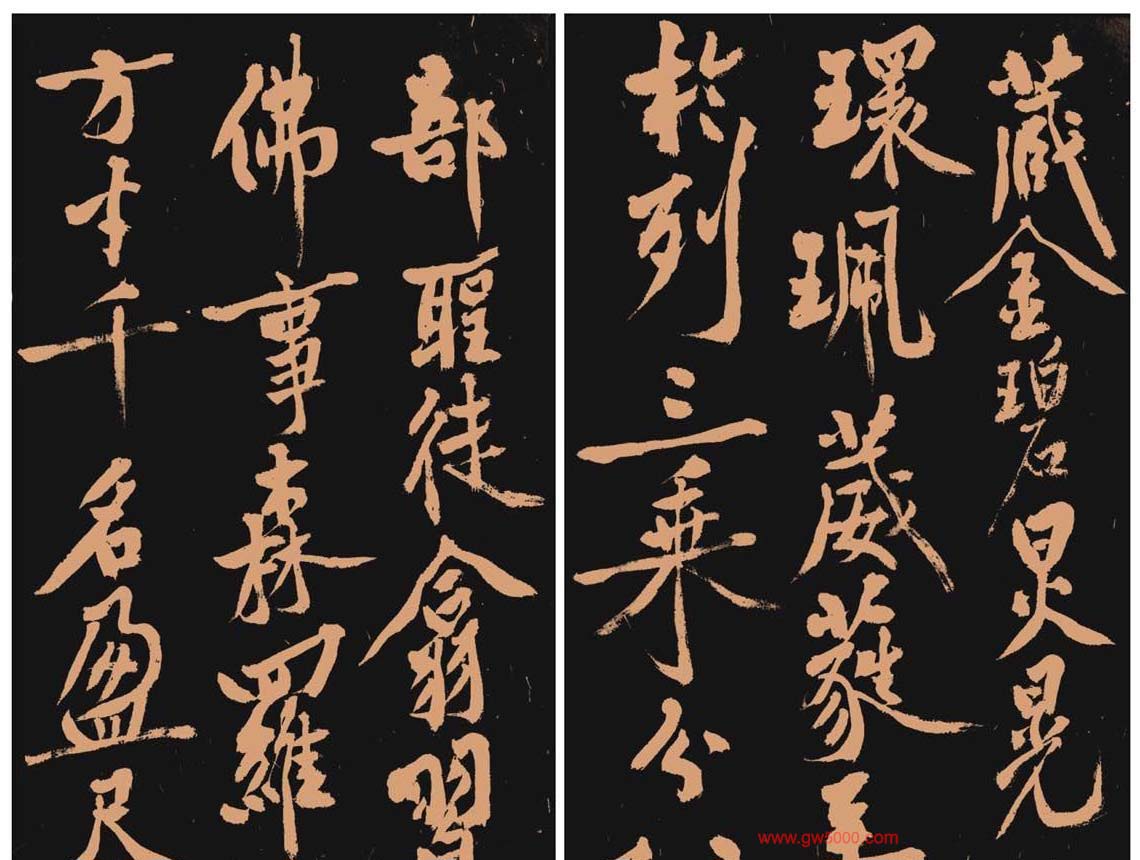 藏金碧炅晃
環珮葳蕤至
於列三乘分八
部聖徒翕習
佛事森羅
方寸千名盈尺
www.gw5000.com